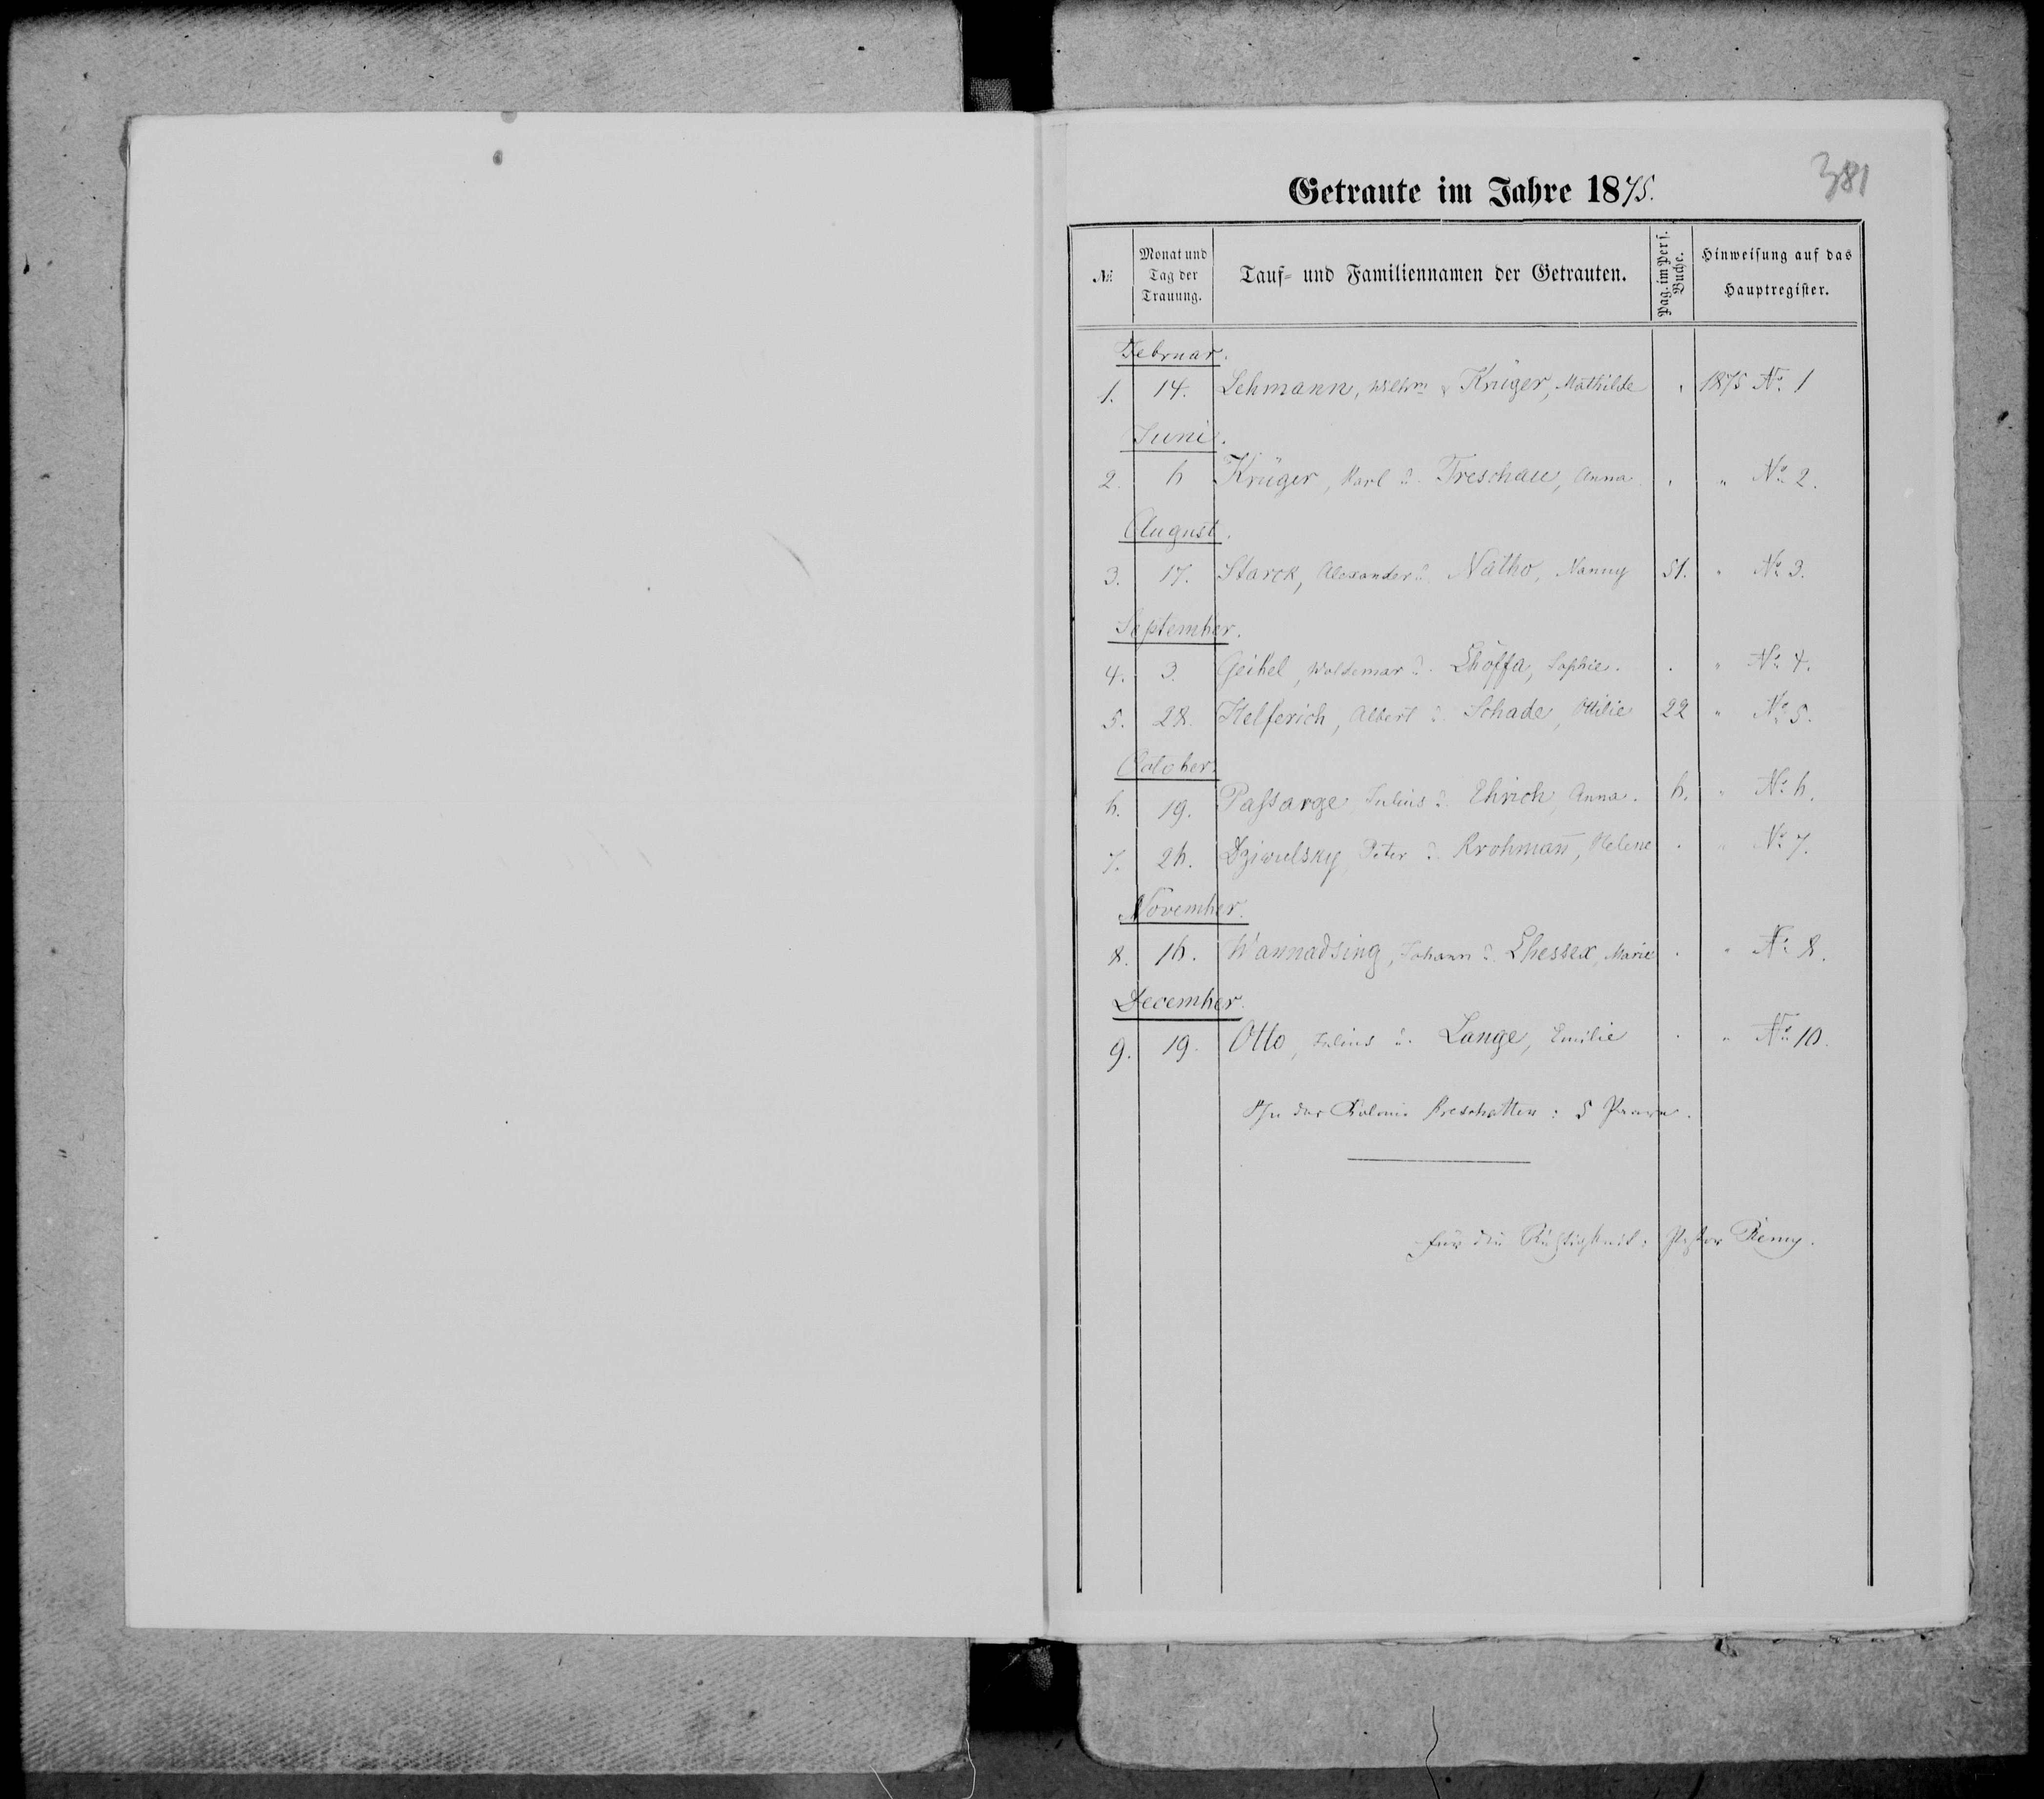 381
Getraute im Jahre 1875.
№ Monat und Tag der Trauung. Tauf- und Familiennamen der Getrauten. Pag. im Pers. Buche. Hinweisung auf das Hauptregister.
Februar.
1. 14. Lehmann, Wilhm & Krüger, Mathilde . 1875 No 1
Juni.
2. 6 Krüger, Karl u. Treschau, Anna . " No 2.
August.
3. 17. Starck, Alexander u. Natho, Nanny 51. " No 3.
September.
4. 3. Geikel, Woldemar u. Lhoffa, Sophie. . " No 4.
5. 28. Helferich, Albert u. Schade, Ottilie 22 " No 5.
October.
6. 19. Paſsarge, Julius u. Ehrich, Anna. 6. " No 6.
7. 26. Dziwulsky, Peter u. Krohmañ, Helene . " No 7.
November.
8. 16. Wannadsing, Johann u. Lhessex, Marie . " No 8.
December.
9. 19. Otto, Julius u. Lange, Emilie . " No 10.
In der Kolonie : 5 Paare.
Für die Richtigkeit: Pastor Remy.